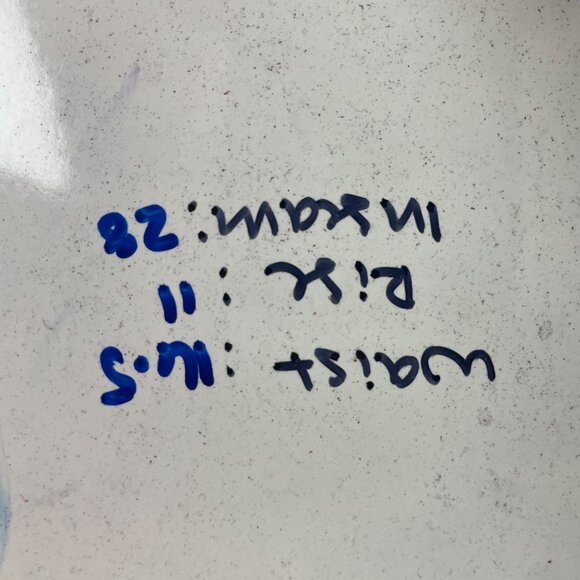 Waist: 16.5
Rise: 11
Inseam: 28